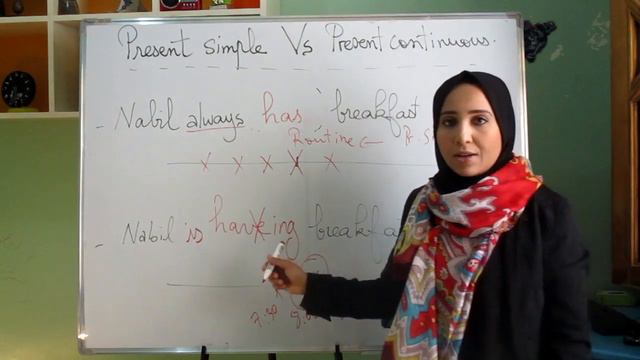 Present simple Vs Present continuous.
- Nabil always has breakfast
Routine
- Nabil is haveing breakfast